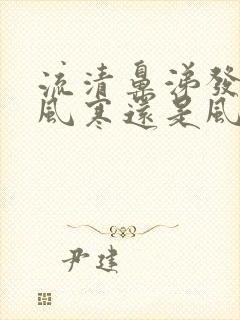 流清鼻涕發
風寒還是風
尹建